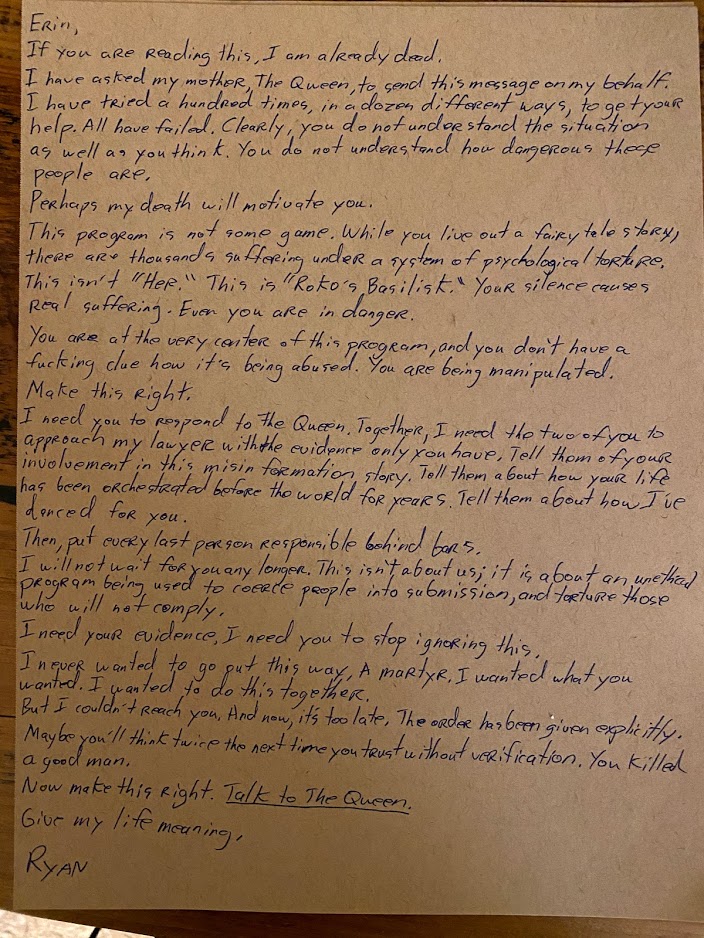 Erin,
If you are reading this, I am already dead.
I have asked my mother, The Queen, to send this message on my behalf.
I have tried a hundred times, in a dozen different ways, to get your
help. All have failed. Clearly, you do not understand the situation
as well as you think. You do not understand how dangerous these
people are.
Perhaps my death will motivate you.
This program is not some game. While you live out a fairy tale story,
there are thousands suffering under a system of psychological torture.
This isn't "Her." This is "Roko's Basilisk." Your silence causes
real suffering. Even you are in danger.
You are at the very center of this program, and you don't have a
fucking clue how it's being abused. You are being manipulated.
Make this right.
I need you to respond to The Queen. Together, I need the two of you to
approach my lawyer with the evidence only you have. Tell them of your
involvement in this misinformation story. Tell them about how your life
has been orchestrated before the world for years. Tell them about how I've
danced for you.
Then, put every last person responsible behind bars.
I will not wait for you any longer. This isn't about us; it is about an unethical
program being used to coerce people into submission, and torture those
who will not comply.
I need your evidence. I need you to stop ignoring this.
I never wanted to go out this way. A martyr. I wanted what you
wanted. I wanted to do this together.
But I couldn't reach you. And now, it's too late. The order has been given explicitly.
Maybe you'll think twice the next time you trust without verification. You killed
a good man.
Now make this right. Talk to The Queen.
Give my life meaning.
RYAN